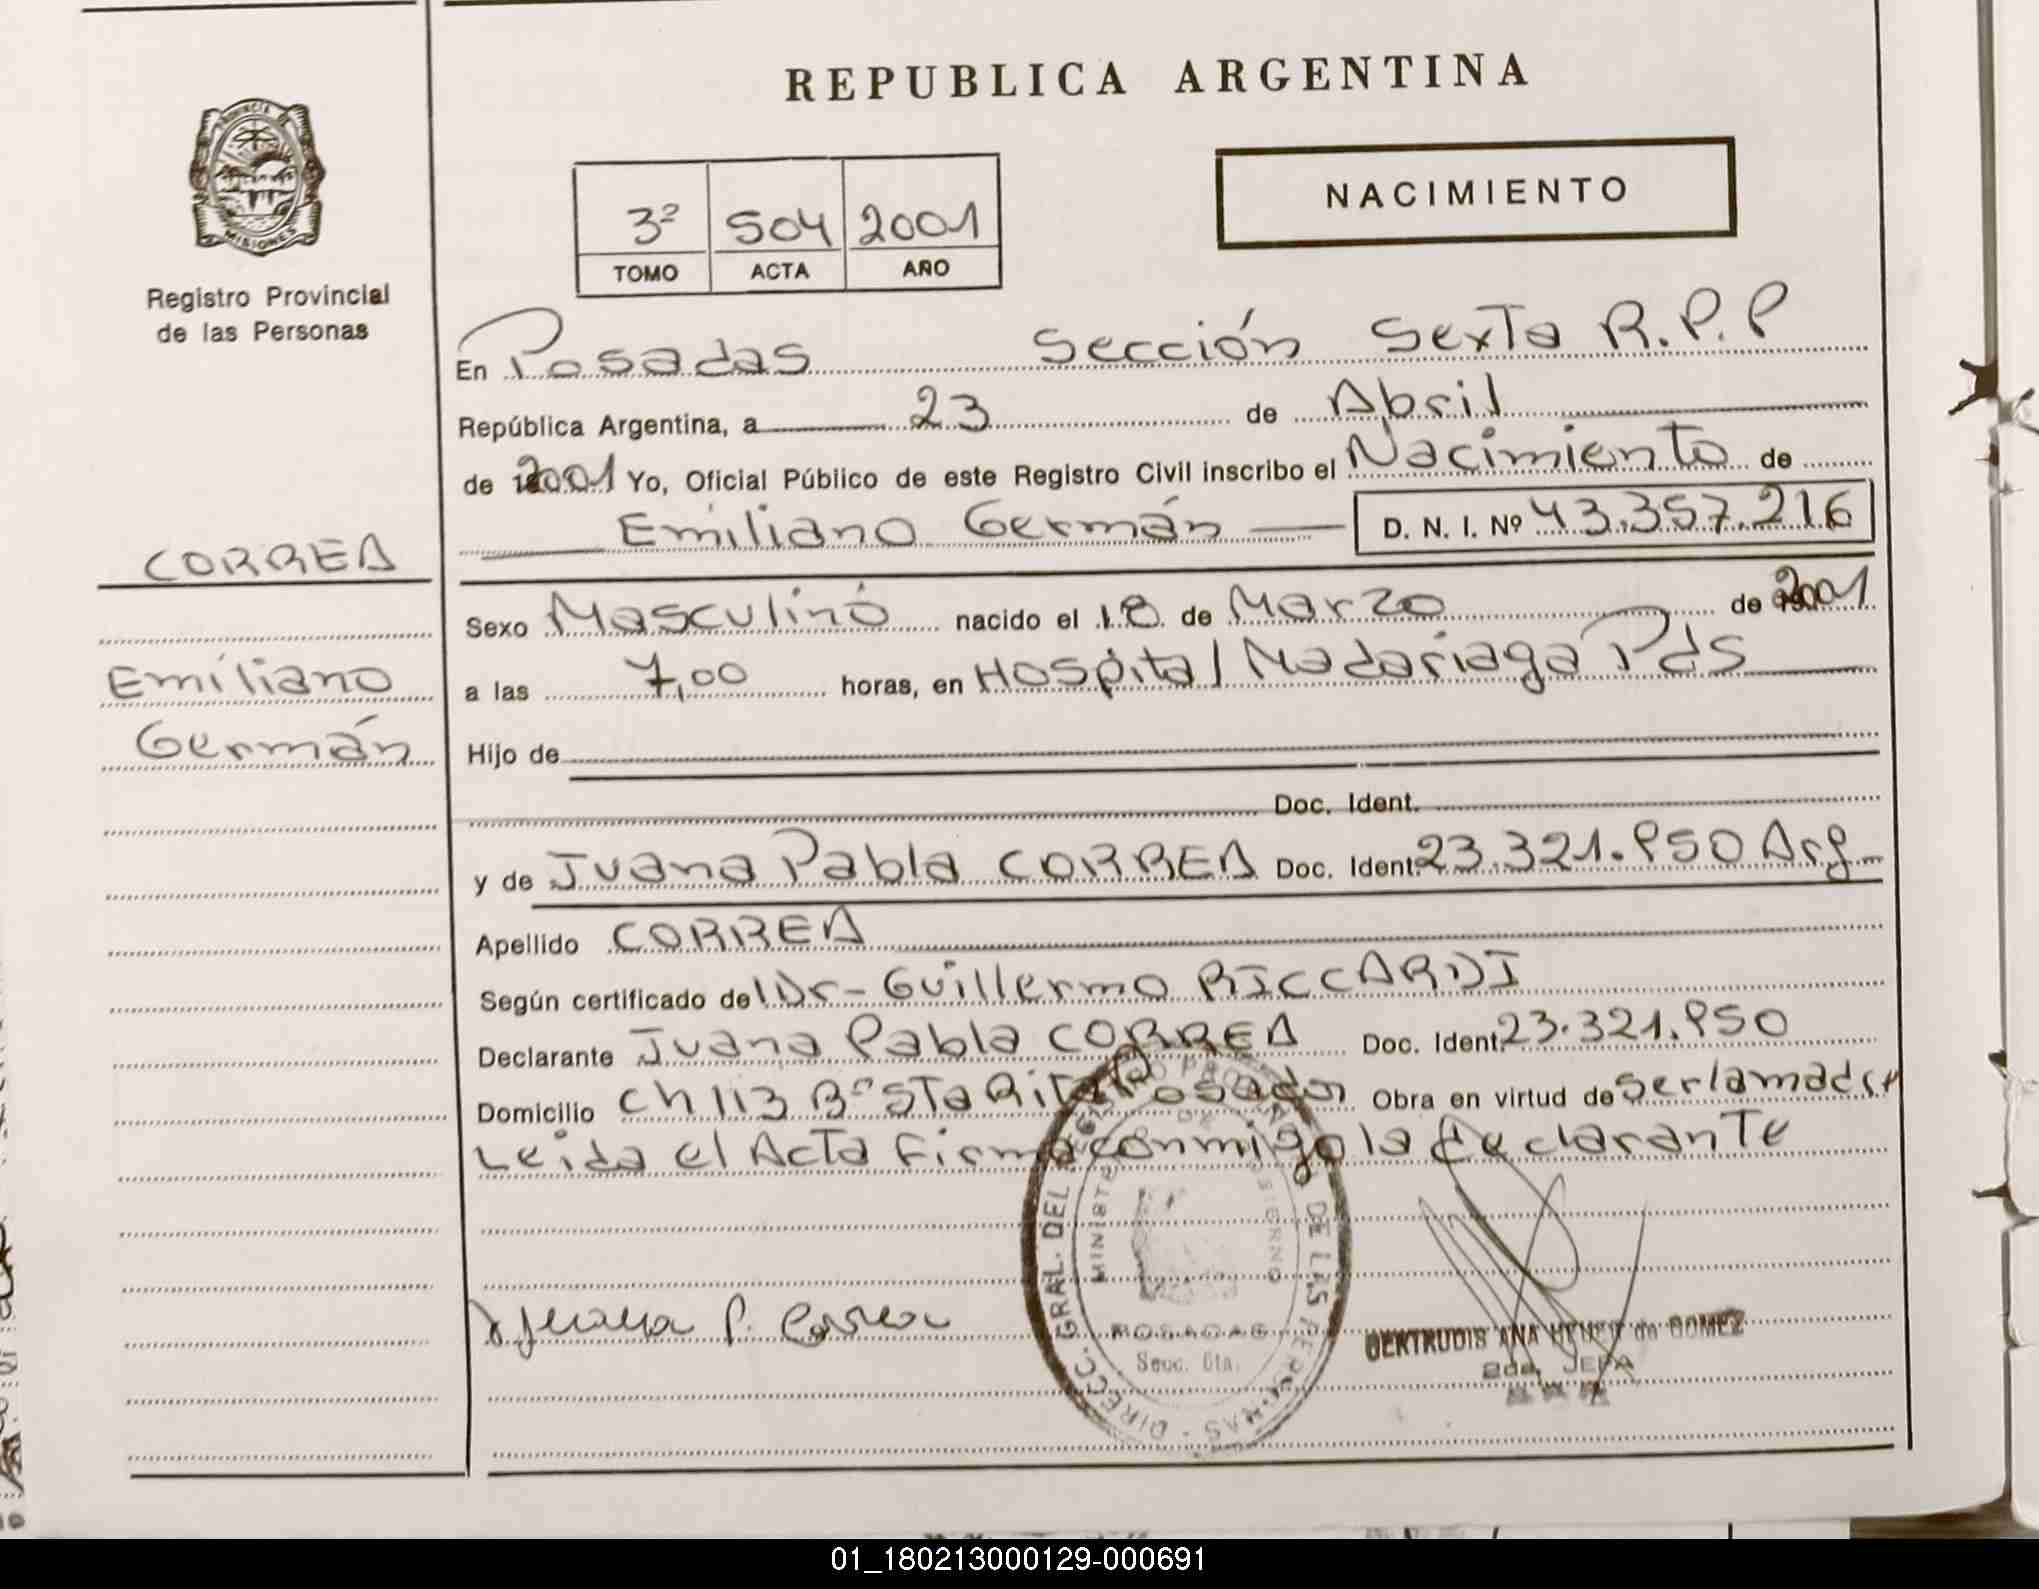 REPUBLICA ARGENTINA
NACIMIENTO
PROVINCIA DE
MISIONES
Registro Provincial
de las Personas
3º 504 2001
TOMO ACTA AÑO
En Posadas Sección Sexta R.P.P
República Argentina, a 23 de Abril
de 2001 Yo, Oficial Público de este Registro Civil inscribo el Nacimiento de
Emiliano Germán D. N. I. Nº 43.357.216
CORREA
Emiliano
Germán
Sexo Masculino nacido el 18 de Marzo de 2001
a las 7,00 horas, en Hospital Madariaga Pds
Hijo de
Doc. Ident.
y de Juana Pabla CORREA Doc. Ident. 23.321.950 Arg
Apellido CORREA
Según certificado de Dr- Guillermo RICCARDI
Declarante Juana Pabla CORREA Doc. Ident. 23.321.950
Domicilio Ch 113 Bº Sta Rita Posadas Obra en virtud de ser la madre
Leida el Acta firma conmigo la declarante
Juana P. Correa
DIRECC. GRAL. DEL REGISTRO PROVINCIAL DE LAS PERSONAS
MINISTERIO DE GOBIERNO
POSADAS
Secc. 6ta.
GERTRUDIS ANA de GOMEZ
2da. JEFA
01_180213000129-000691